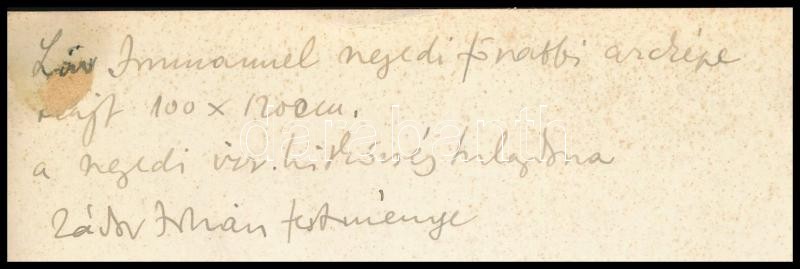 Löw Immanuel szegedi főrabbi arcképe
olajf 100 x 120 cm.
a szegedi izr. hitközség tulajdona
Zádor István festménye
darabanth